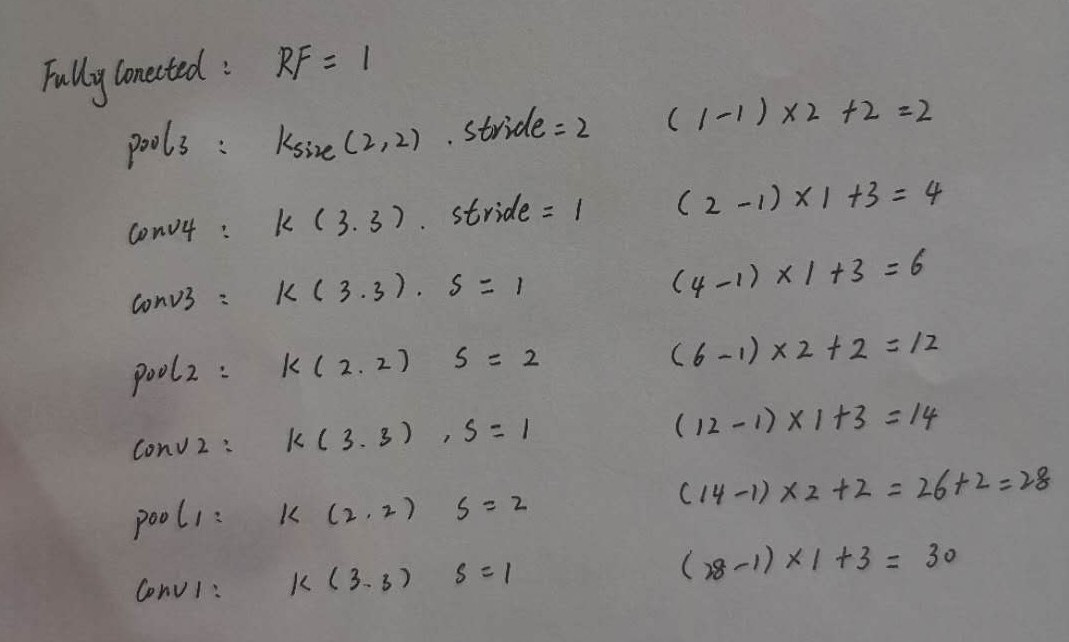 Fully Conected : RF = 1
pool3 : Ksize (2,2) . stride = 2 (1-1) × 2 +2 = 2
conv4 : K (3.3). stride = 1 (2-1) × 1 +3 = 4
conv3 : K (3.3). S = 1 (4-1) × 1 +3 = 6
pool2 : K (2.2) S = 2 (6-1) × 2 + 2 = 12
conv2 : K (3.3) , S = 1 (12-1) × 1 +3 = 14
pool1 : K (2.2) S = 2 (14-1) × 2 +2 = 26+2 = 28
conv1 : K (3.3) S = 1 (28-1) × 1 +3 = 30